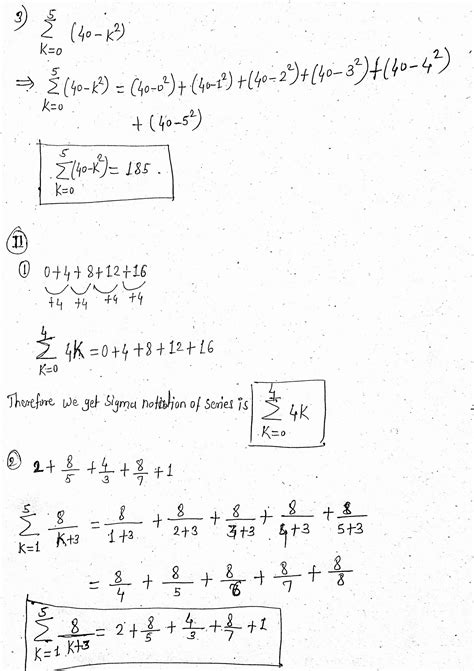 3) 5∑K=0 (40-K²)
⇒ 5∑K=0 (40-K²) = (40-0²) + (40-1²) + (40-2²) + (40-3²) + (40-4²)
+ (40-5²)
5∑K=0 (40-K²) = 185.
II
① 0+4+8+12+16
+4 +4 +4 +4
4∑K=0 4K = 0+4+8+12+16
Therefore we get Sigma notation of series is 4∑K=0 4K
② 2 + 8/5 + 4/3 + 8/7 + 1
5∑K=1 8/K+3 = 8/1+3 + 8/2+3 + 8/3+3 + 8/4+3 + 8/5+3
= 8/4 + 8/5 + 8/6 + 8/7 + 8/8
5∑K=1 8/K+3 = 2 + 8/5 + 4/3 + 8/7 + 1